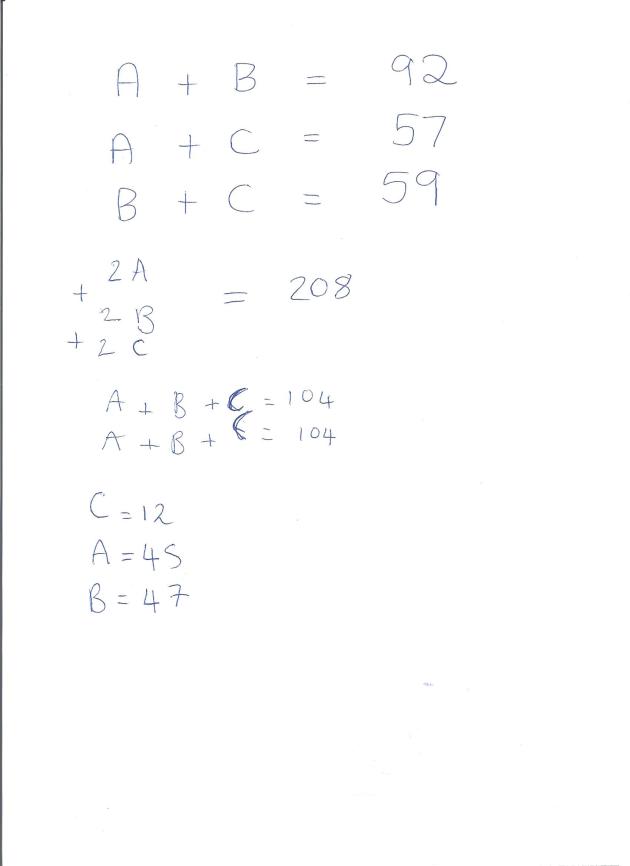 A + B = 92
A + C = 57
B + C = 59
2A
+
2B = 208
+ 2C
A + B + C = 104
A + B + C = 104
C = 12
A = 45
B = 47